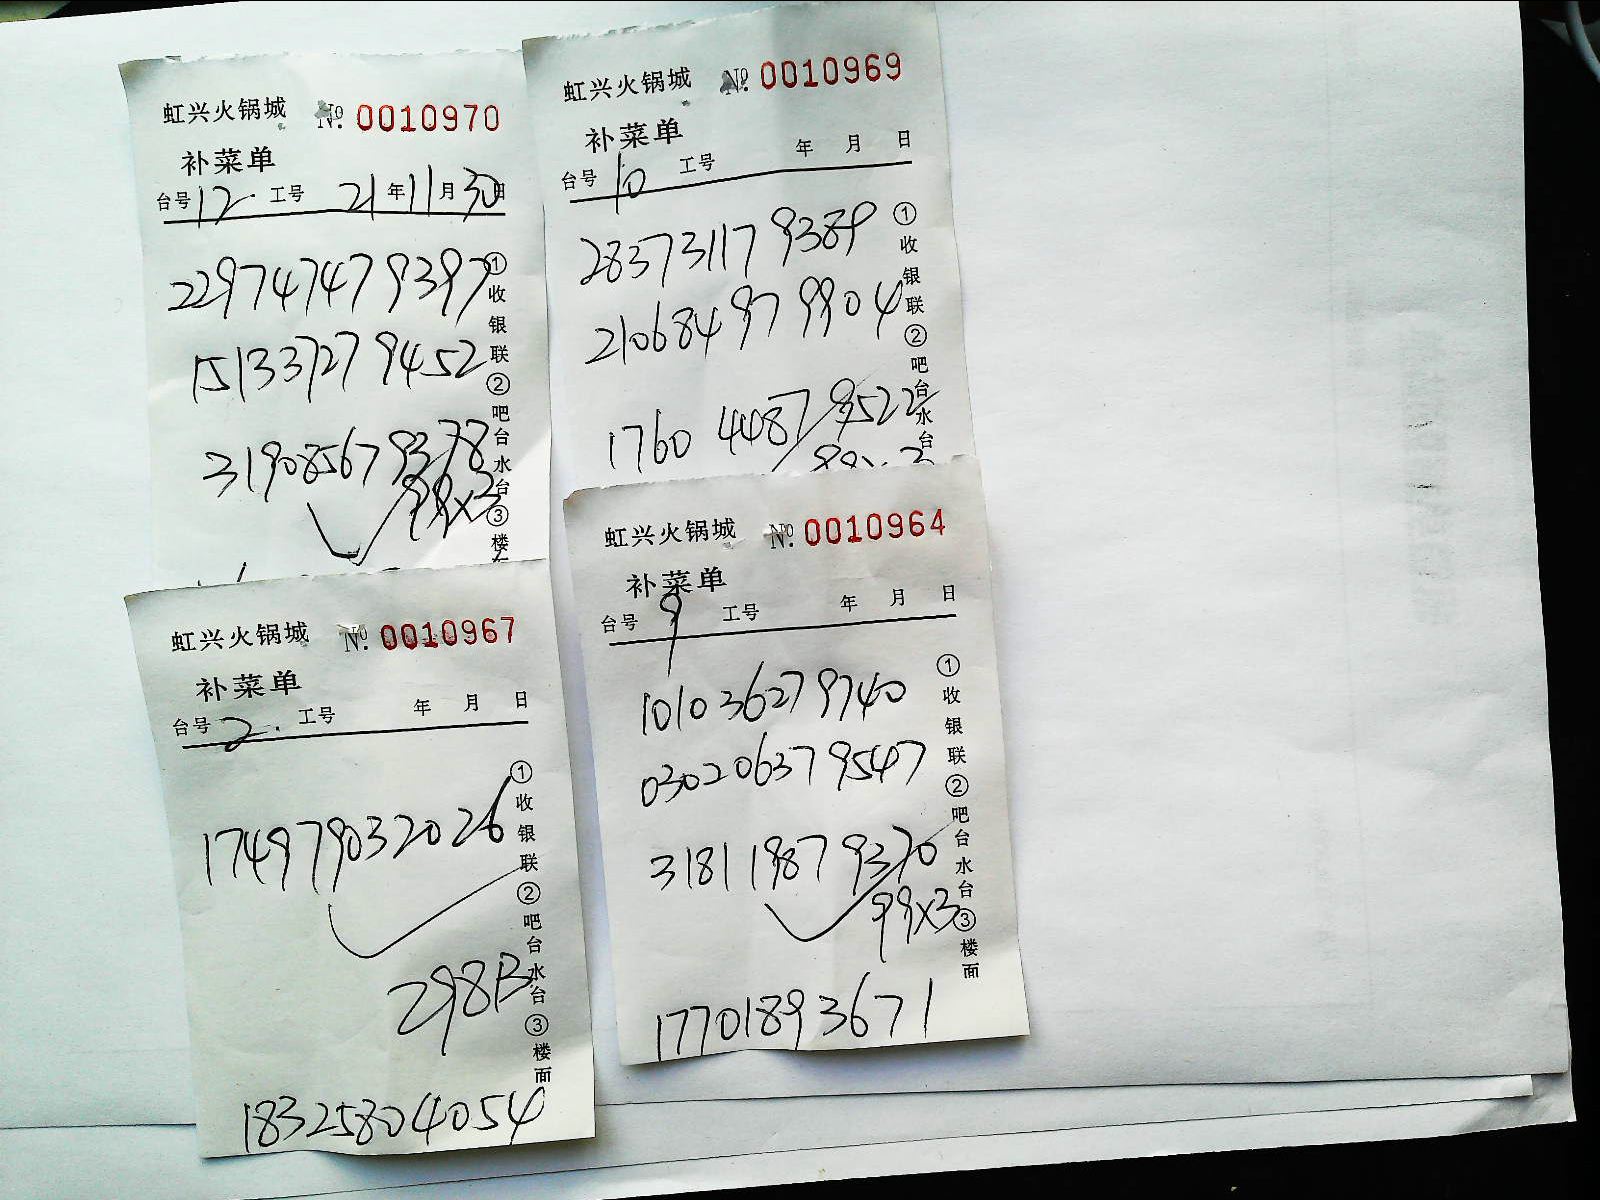 虹兴火锅城 No. 0010970
补菜单
台号 12. 工号 21年11月30日
229747479397
151337279452
319085679378
99x3
①收银联②吧台水台③楼
虹兴火锅城 No. 0010969
补菜单
台号 10 工号 年 月 日
283731179389
210684979904
176044879522
①收银联②吧台水台
虹兴火锅城 No. 0010967
补菜单
台号 2. 工号 年 月 日
174979032026
298B
18325804054
①收银联②吧台水台③楼面
虹兴火锅城 No. 0010964
补菜单
台号 9 工号 年 月 日
101036279740
030206379547
318119879370
99x3
17701893671
①收银联②吧台水台③楼面